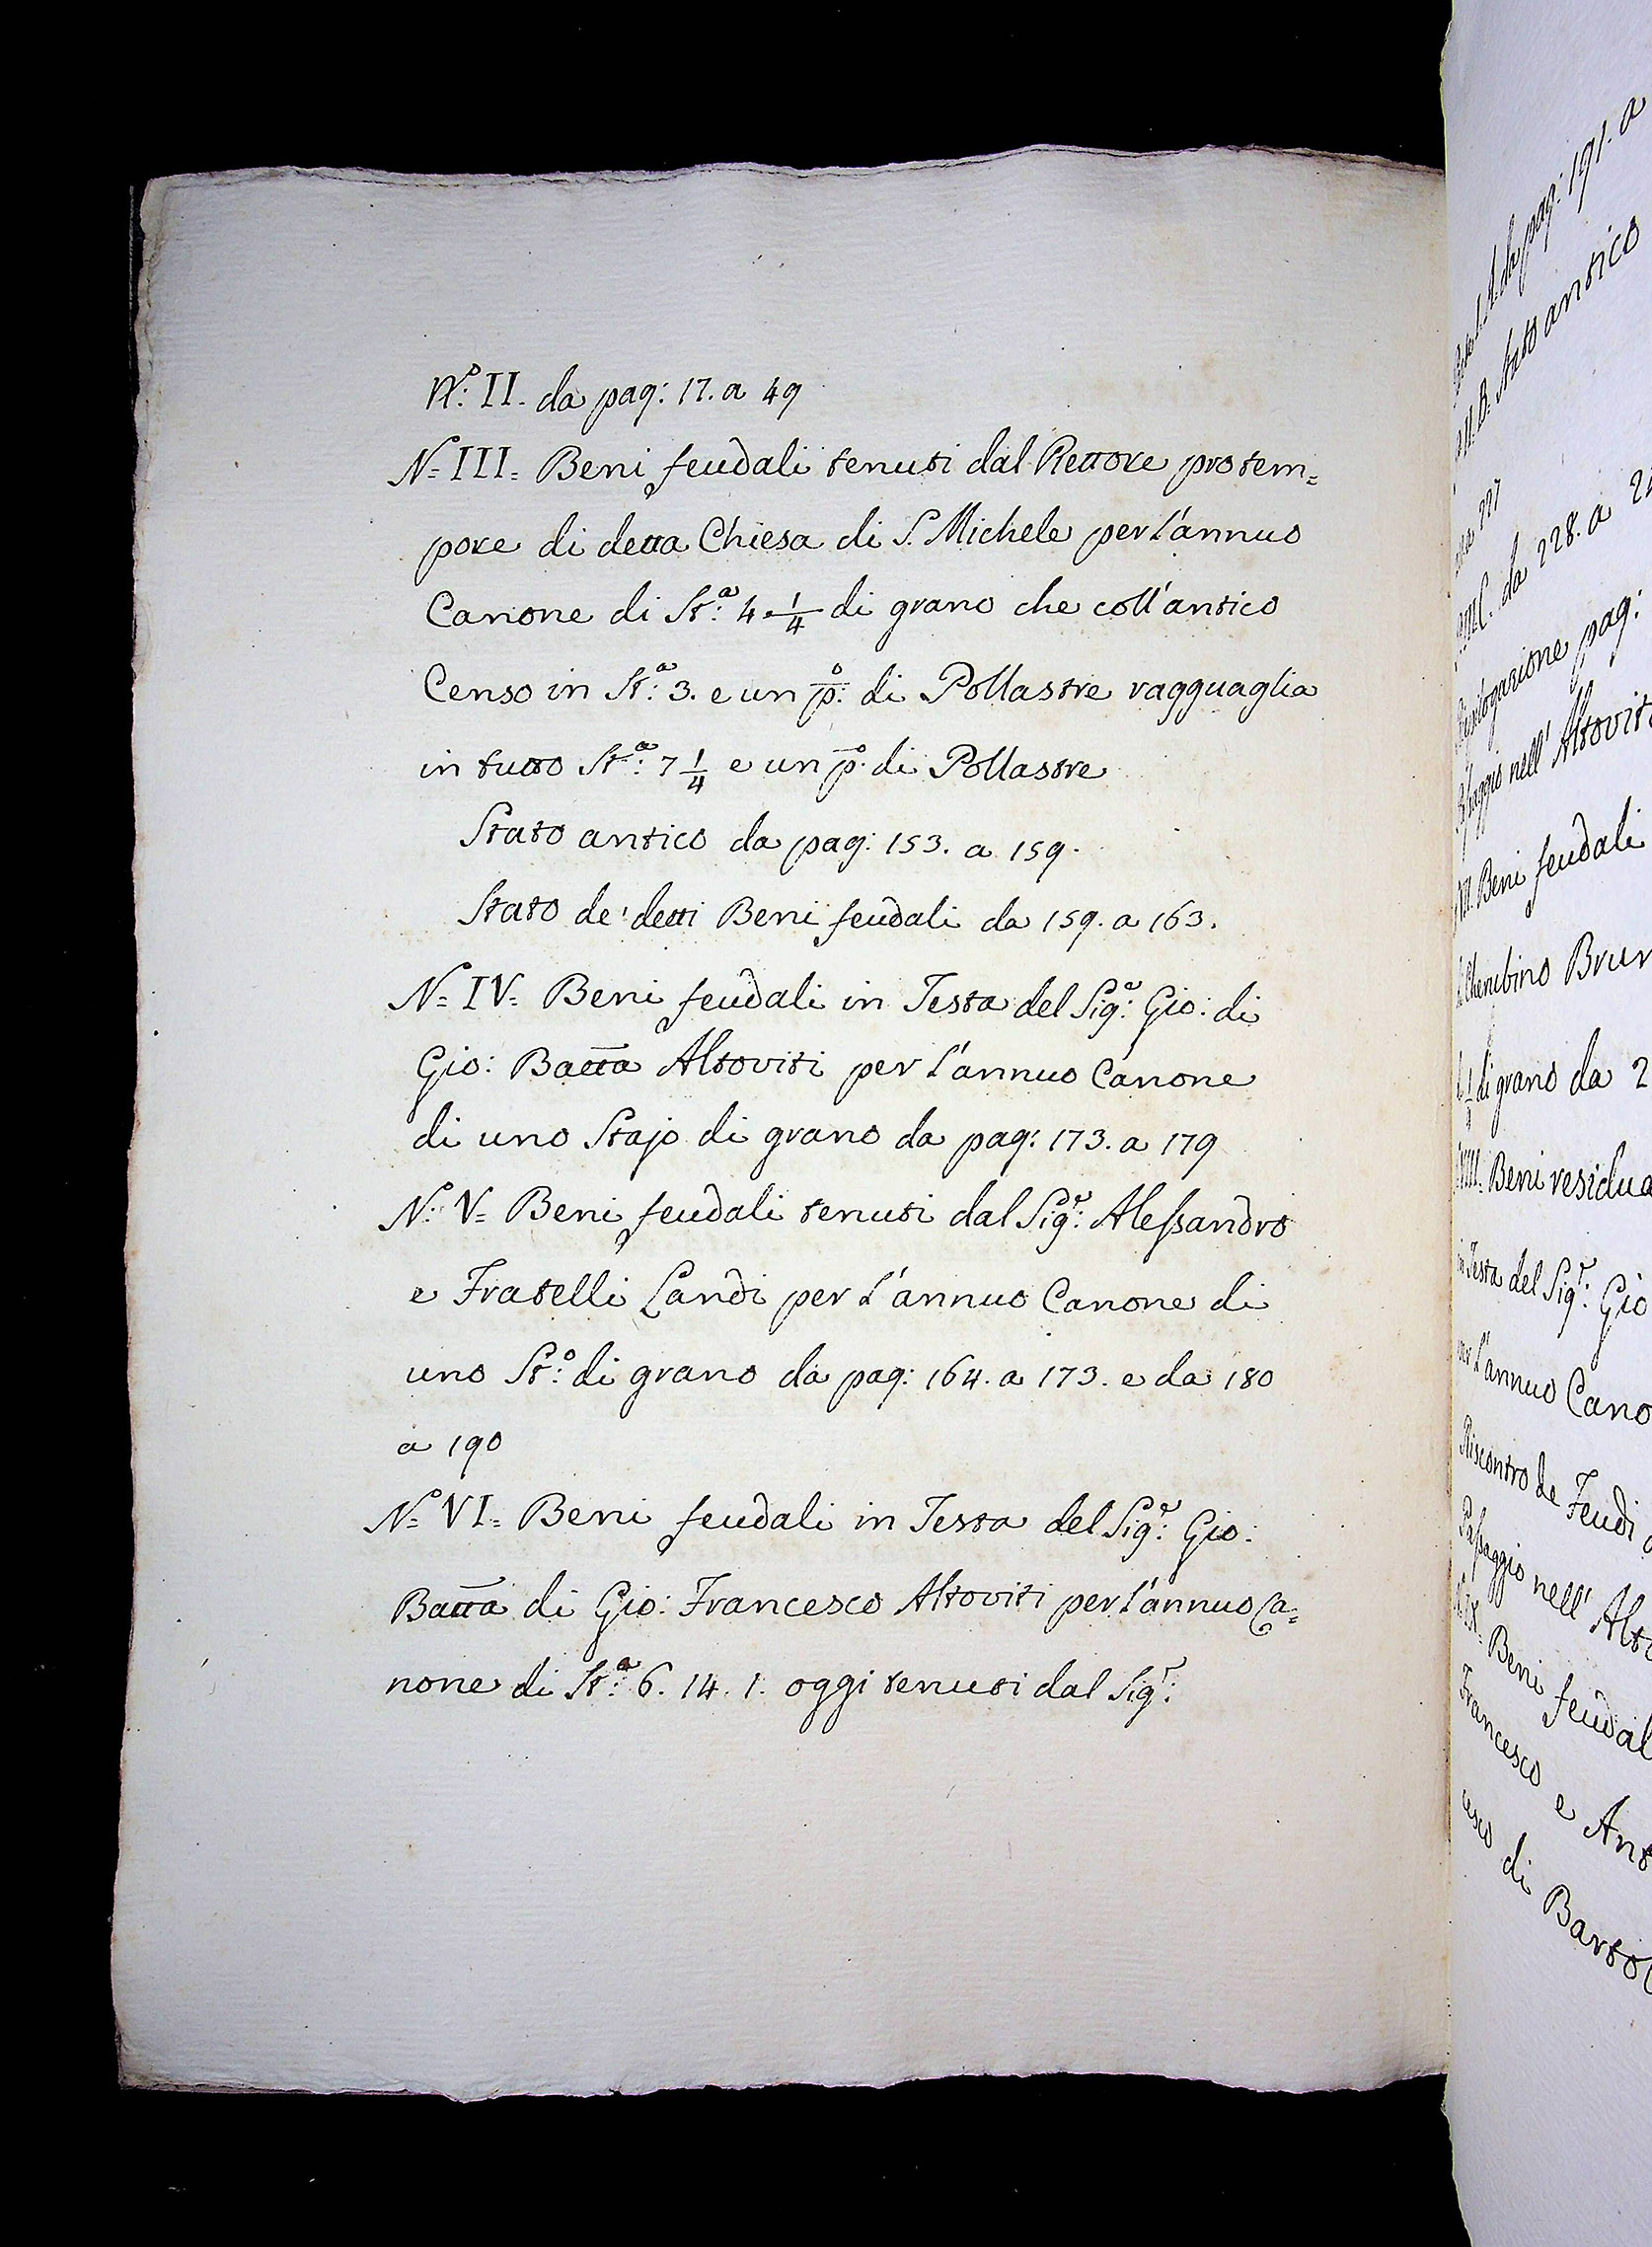 N.º II. da pag: 17. a 49
Nº III= Beni feudali tenuti dal Rettore protem=
pore di detta Chiesa di S. Michele per l'annuo
Canone di St:ª 4 1/4 di grano che coll'antico
Censo in St:ª 3. e un pº: di Pollastre ragguaglia
in tutto St:ª 7 1/4 e un pº: di Pollastre
Stato antico da pag: 153. a 159.
Stato de' detti Beni feudali da 159. a 163.
Nº IV= Beni feudali in Testa del Sig:r Gio: di
Gio: Batta Altoviti per l'annuo Canone
di uno Stajo di grano da pag: 173. a 179
Nº V= Beni feudali tenuti dal Sig:r Alessandro
e Fratelli Landi per l'annuo Canone di
uno St:º di grano da pag: 164. a 173. e da 180
a 190
Nº VI= Beni feudali in Testa del Sig:r Gio:
Batta di Gio: Francesco Altoviti per l'annuo Ca=
none di St:ª 6. 14. 1. oggi tenuti dal Sig:r
da pag: 191. a
Stato antico
da 228. a
pag:
nell' Altovit
Beni feudali
Cherubino Brun
di grano da 2
VIII. Beni residua
in Testa del Sig:r Gio
l'annuo Cano
Riscontro de Feudi
Passaggio nell' Alto
IX. Beni feudal
Francesco e Ant
cesco di Bartol